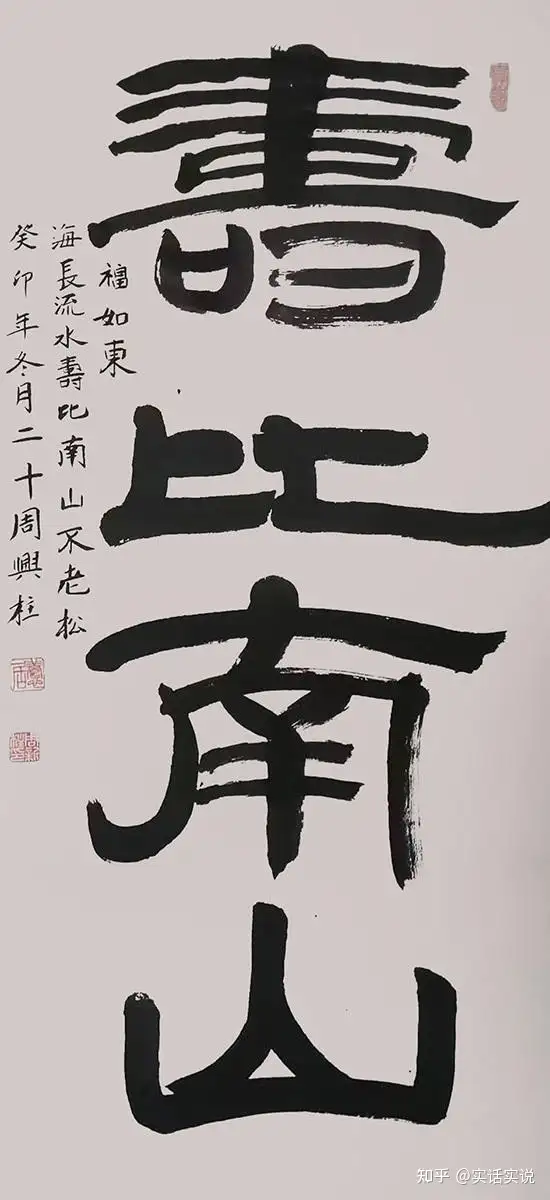 壽比南山
福如東
海長流水壽比南山不老松
癸卯年冬月二十周興柱
知乎 @实话实说